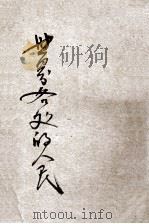 世界各处的人民
www.mtoou.info